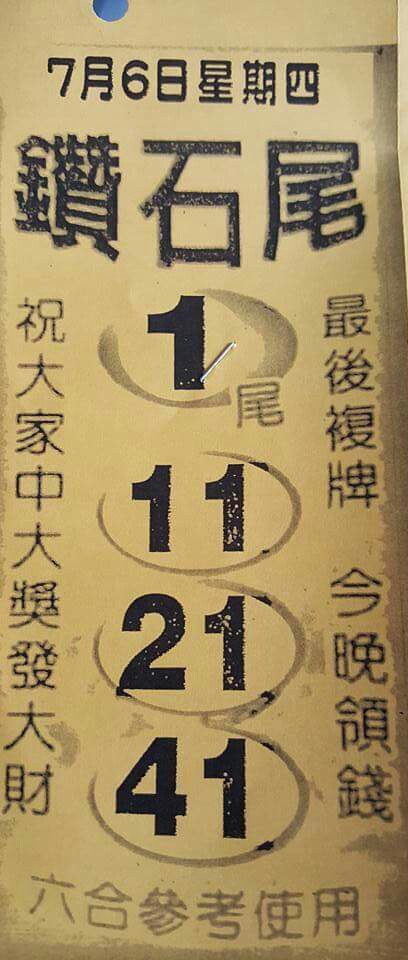 7月6日星期四
鑽石尾
最後複牌 今晚領錢
1尾
11
21
41
祝大家中大獎發大財
六合參考使用